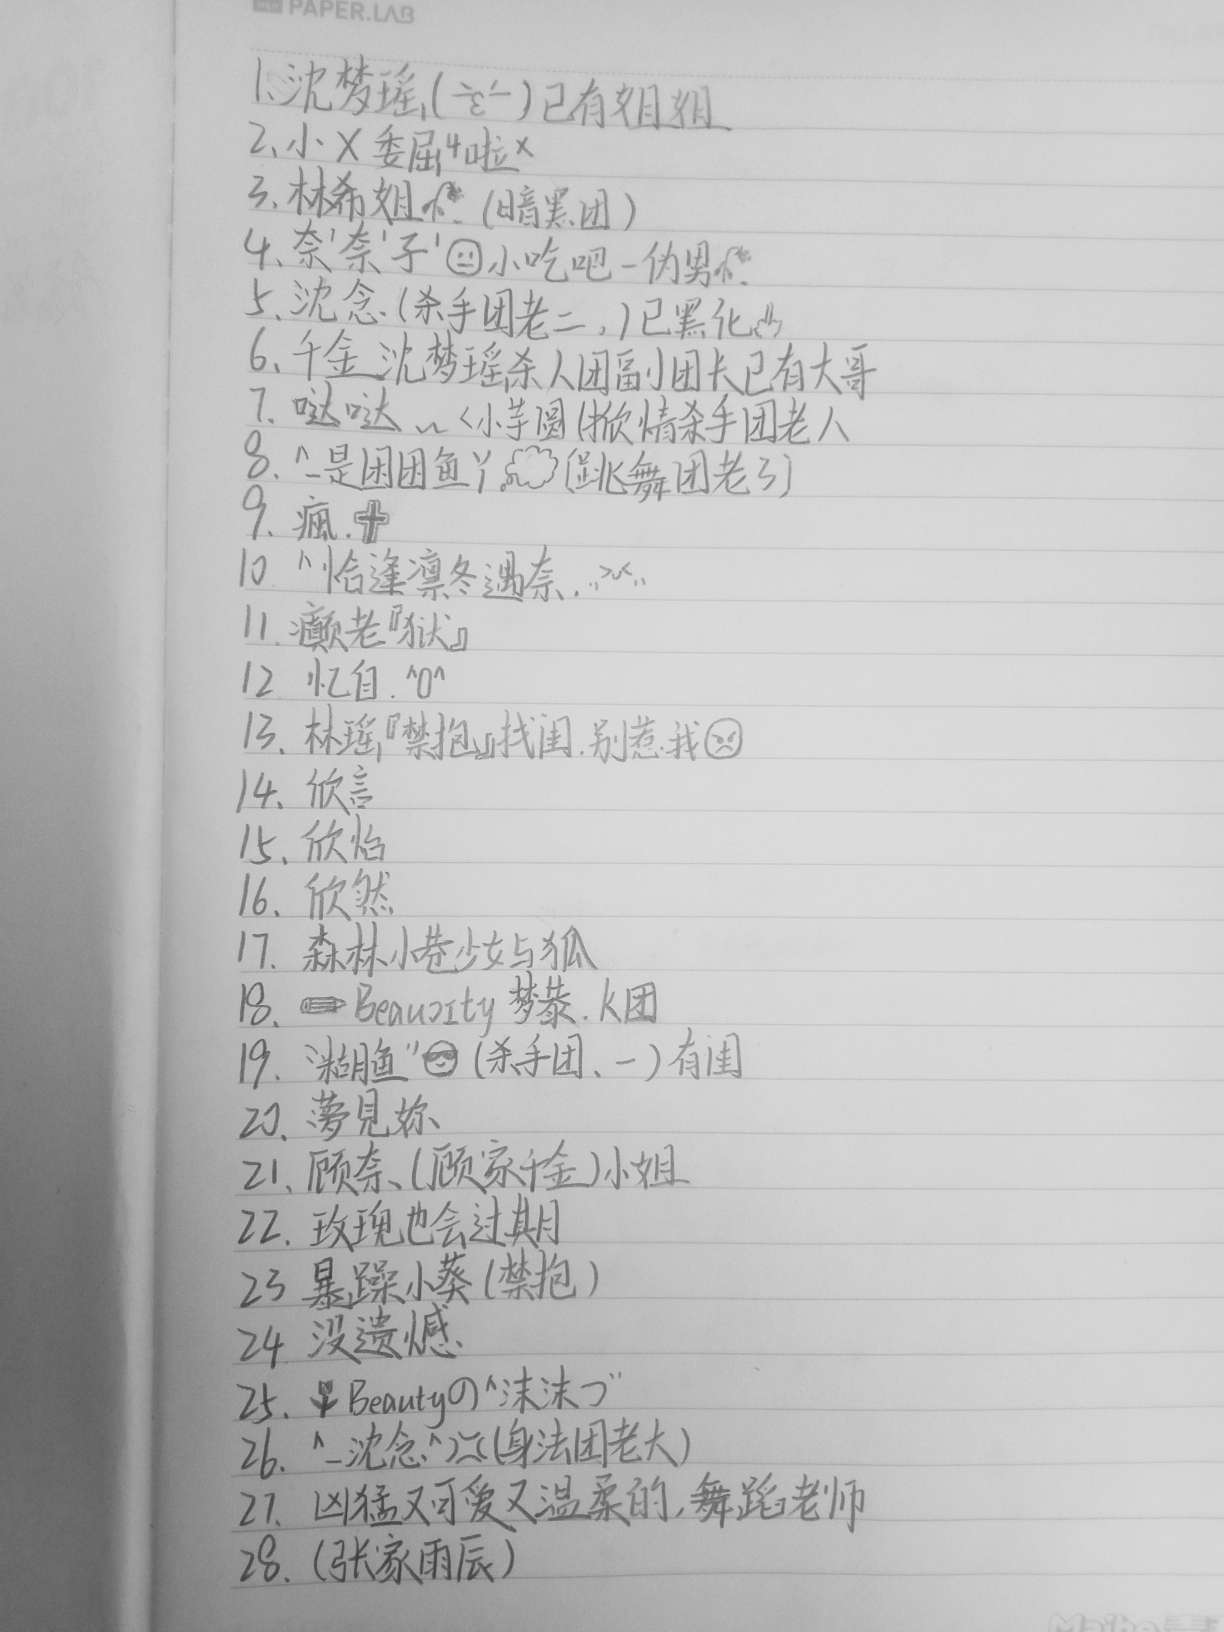 PAPER.LAB
1.沈梦瑶(-̀ε-́)已有姐姐
2、小X委屈4啦x
3.林希姐 (暗黑团)
4.奈'奈'子'小吃吧-伪男
5、沈念.(杀手团老二，)已黑化
6、千金沈梦瑶杀人团副团长已有大哥
7.哒哒 ~<小芋圆(掀情杀手团老人
8.^_是困困鱼丫(跳舞团老3)
9.瘋.
10 ^恰逢凛冬遇奈.
11.癫老『狱』
12 忆自.^0^
13.林瑶『禁抱』找闺.别惹我
14、欣言
15、欣焰
16、欣然
17.森林小巷少女与狐
18、Beauɔity 梦蒅.K团
19.(杀手团、一)有闺
20、夢見妳
21、顾奈、(顾家千金)小姐
22.玫瑰也会过期
23 暴躁小葵(禁抱)
24 没遗憾.
25.Beautyの^沫沫づ"
26.^_沈念^(身法团老大)
27.凶猛又可爱又温柔的,舞蹈老师
28.(张家雨辰)